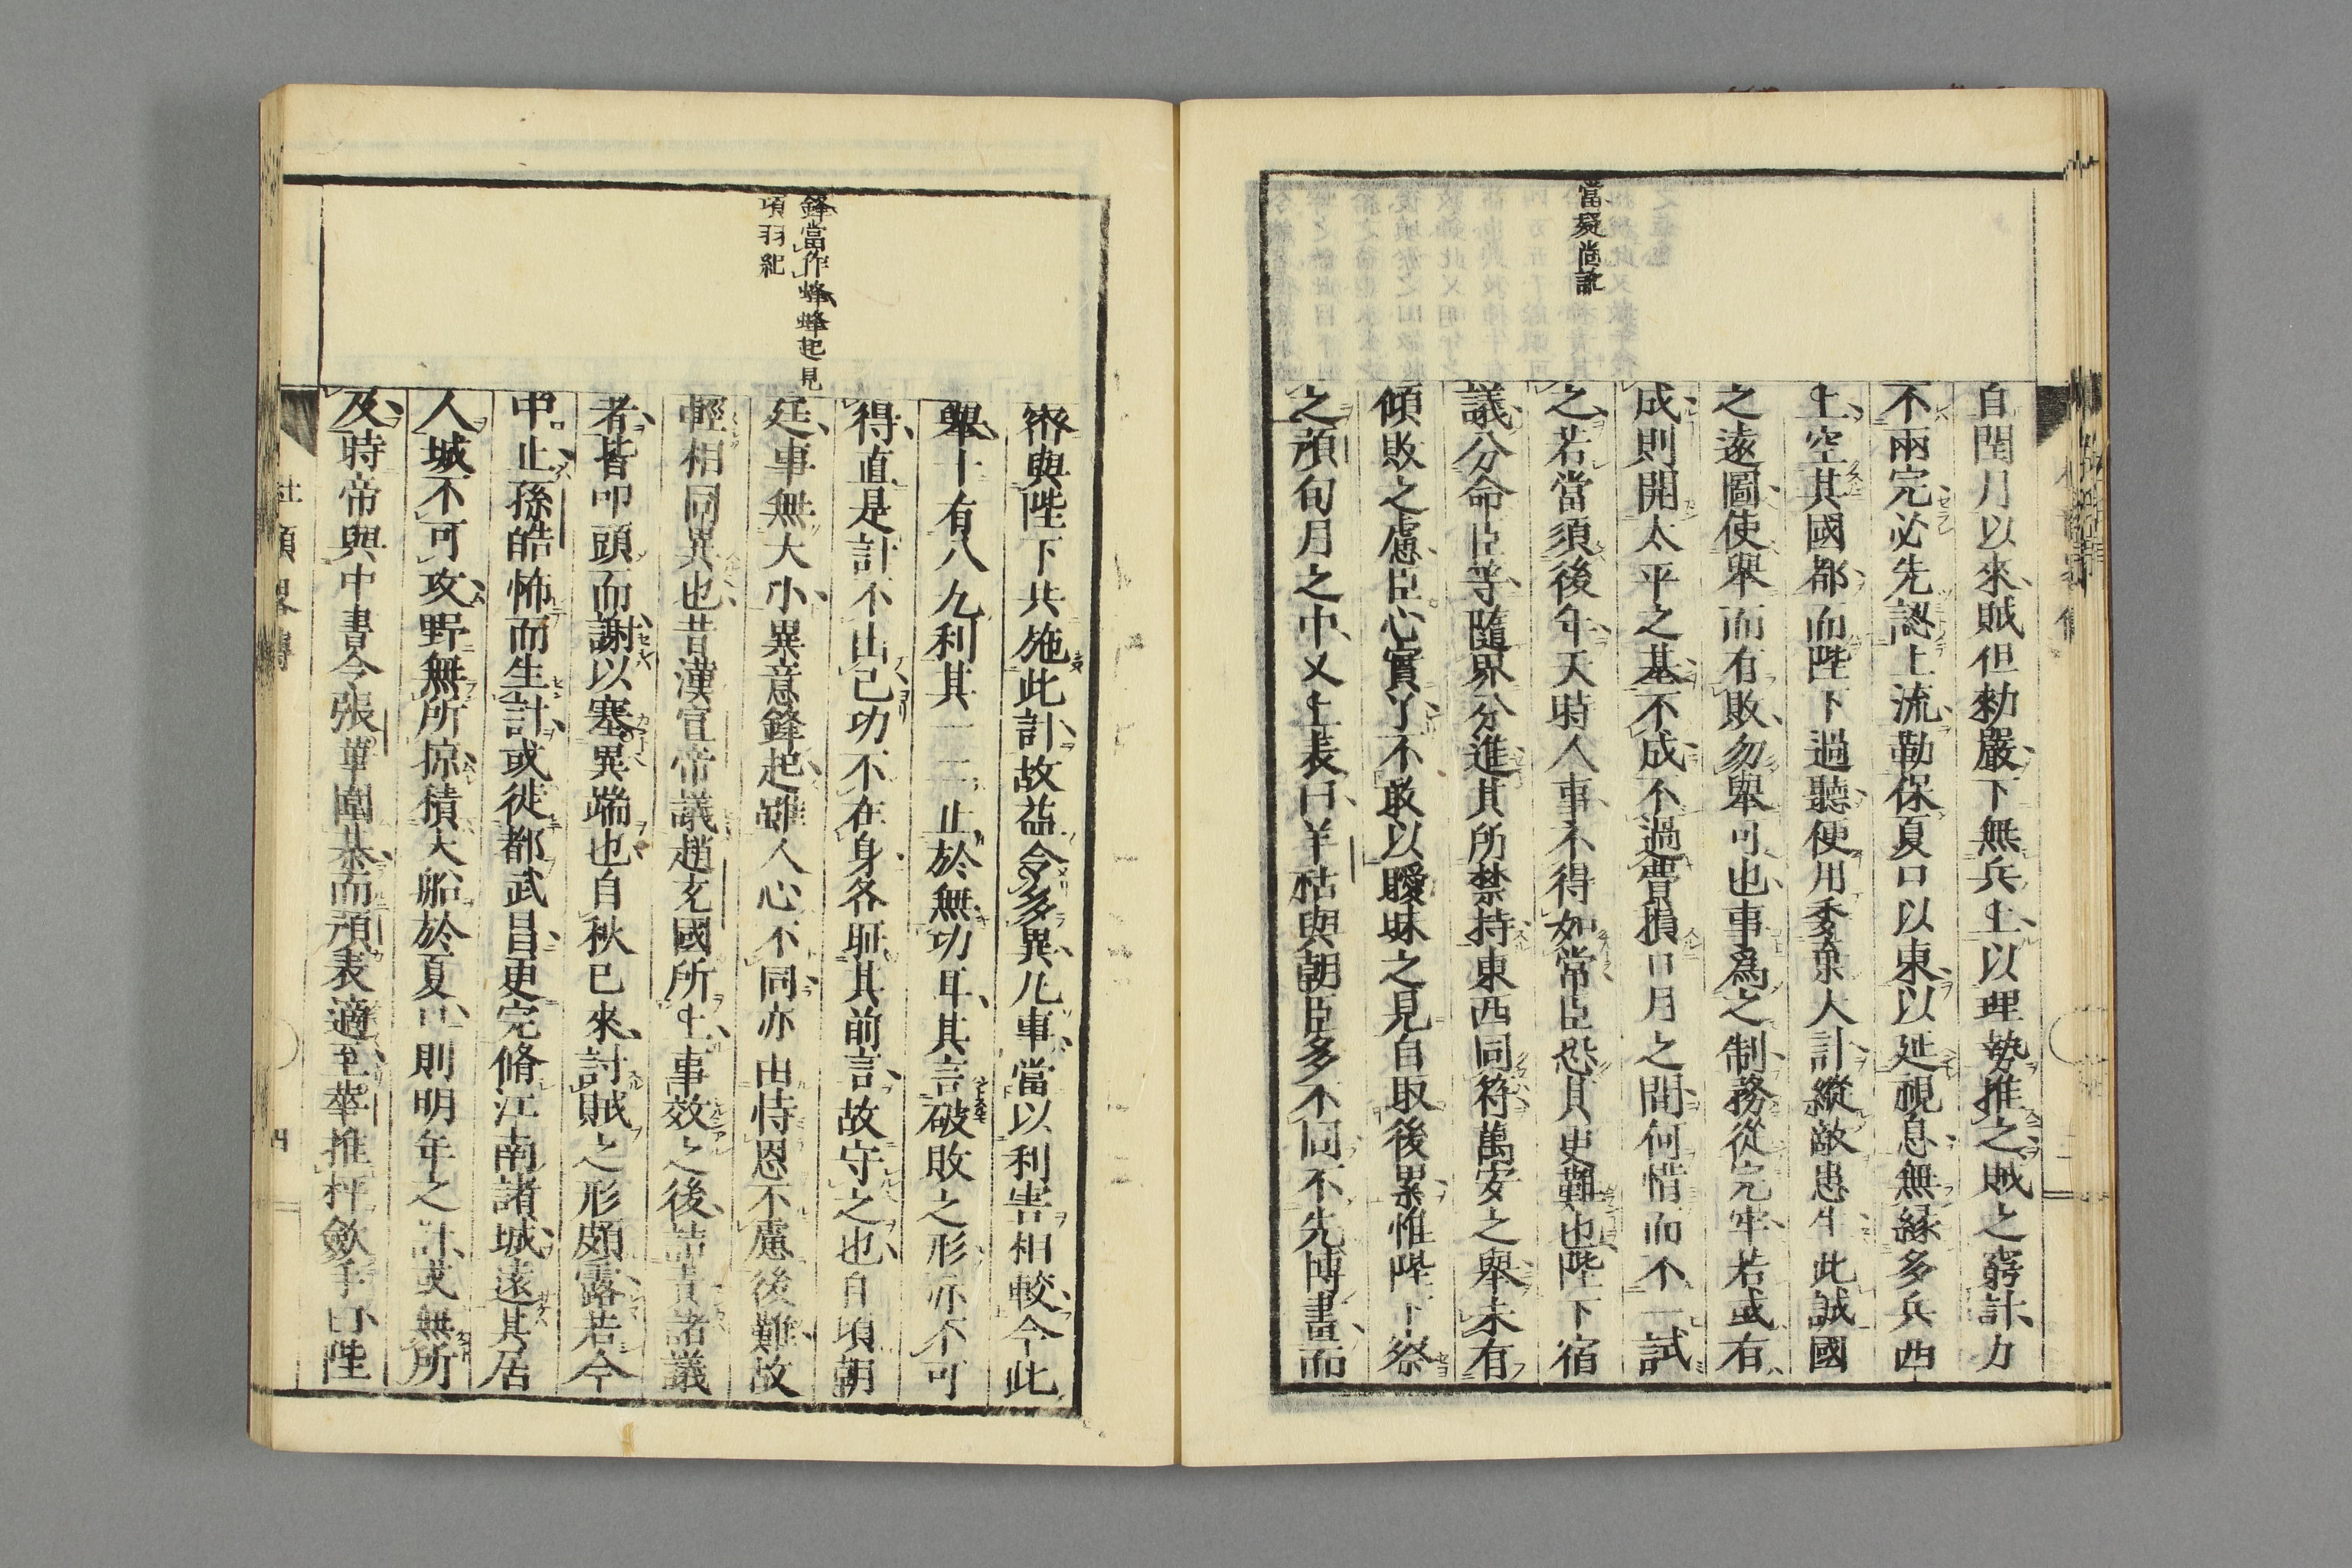 當疑尚訛
自閏月以來賊但勑嚴下無兵上以理勢推之賊之窮計力
不兩完必先認上流勒保夏口以東以延視息無緣多兵西
上空其國都而陛下過聽便用委棄大計縱敵患生此誠國
之遠圖使舉而有敗勿舉可也事爲之制務從完牢若或有
成則開太平之基不成不過費損日月之間何惜而不一試
之若當須後年天時人事不得如常臣恐其更難也陛下宿
議分命臣等隨界分進其所禁持東西同符萬安之舉未有
傾敗之慮臣心實了不敢以曖昧之見自取後累惟陛下察
之預旬月之中又上表曰羊祜與朝臣多不同不先博畫而
鋒當作蜂蜂起見
項羽紀
密與陛下共施此計故益令多異凡事當以利害相較今此
舉十有八九利其一二止於無功耳其言破敗之形亦不可
得直是計不出已功不在身各耻其前言故守之也自頃朝
廷事無大小異意鋒起雖人心不同亦由恃恩不慮後難故
輕相同異也昔漢宣帝議趙充國所上事效之後詰責諸議
者皆叩頭而謝以塞異端也自秋已來討賊之形頗露若今
中止孫皓怖而生計或徙都武昌更完脩江南諸城遠其居
人城不可攻野無所掠積大船於夏口則明年之計或無所
及時帝與中書令張華圍棊而預表適至華推枰斂手曰陛
杜預畧傳
四